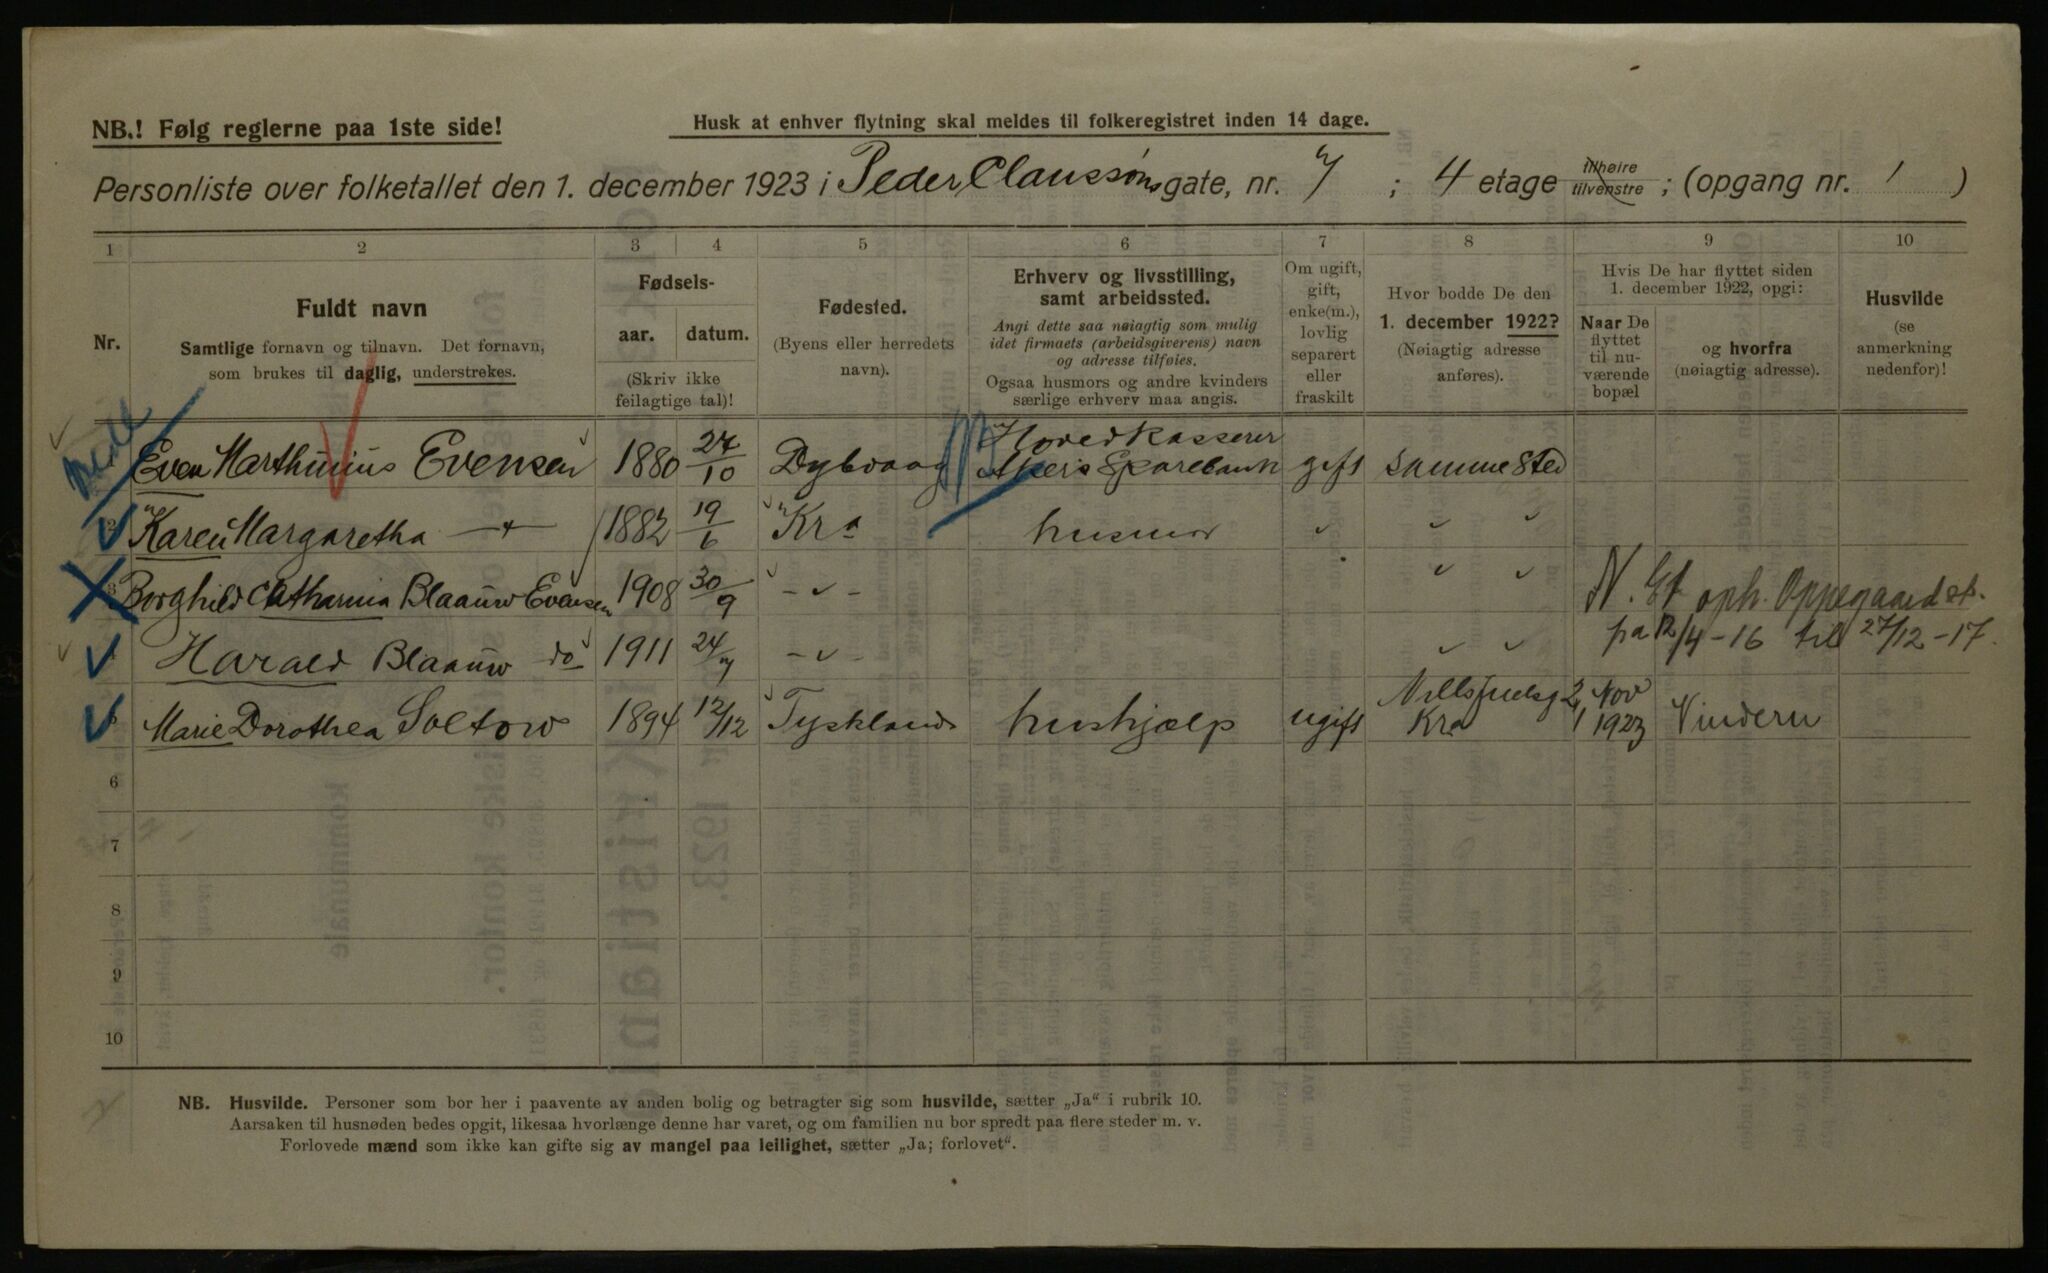 NB.! Følg reglerne paa 1ste side!
Husk at enhver flytning skal meldes til folkeregistret inden 14 dage.
Personliste over folketallet den 1. december 1923 i Peder Claussøns gate, nr. 7 ; 4 etage tilhøire tilvenstre ; (opgang nr. 1 )
1 2 3 4 5 6 7 8 9 10
Nr.
Fuldt navn
Samtlige fornavn og tilnavn. Det fornavn,
som brukes til daglig, understrekes.
Fødsels-
aar. datum.
(Skriv ikke
feilagtige tal)!
Fødested.
(Byens eller herredets
navn).
Erhverv og livsstilling,
samt arbeidssted.
Angi dette saa nøiagtig som mulig
idet firmaets (arbeidsgiverens) navn
og adresse tilføies.
Ogsaa husmors og andre kvinders
særlige erhverv maa angis.
Om ugift,
gift,
enke(m.),
lovlig
separert
eller
fraskilt
Hvor bodde De den
1. december 1922?
(Nøiagtig adresse
anføres).
Hvis De har flyttet siden
1. december 1922, opgi:
Naar De
flyttet
til nu-
værende
bopæl
og hvorfra
(nøiagtig adresse).
Husvilde
(se
anmerkning
nedenfor)!
Even Marthinius Evensen 1880 27/10 Dybvaag Hovedkasserer
Akers Sparebank gift samme sted
2 Karen Margaretha 1882 19/6 Kra husmor
3 Borghild Catharina Blaauw Evensen 1908 30/9 - " - N. Et oph. Oppegaard st.
på 12/4-16 til 27/12-17.
Harald Blaauw do 1911 24/7 - " -
5 Marie Dorothea Soltow 1894 12/12 Tyskland hushjælp ugift Kra 1 Nov 1923 Vindern
6
7
8
9
10
NB. Husvilde. Personer som bor her i paavente av anden bolig og betragter sig som husvilde, sætter „Ja“ i rubrik 10.
Aarsaken til husnøden bedes opgit, likesaa hvorlænge denne har varet, og om familien nu bor spredt paa flere steder m. v.
Forlovede mænd som ikke kan gifte sig av mangel paa leilighet, sætter „Ja; forlovet“.